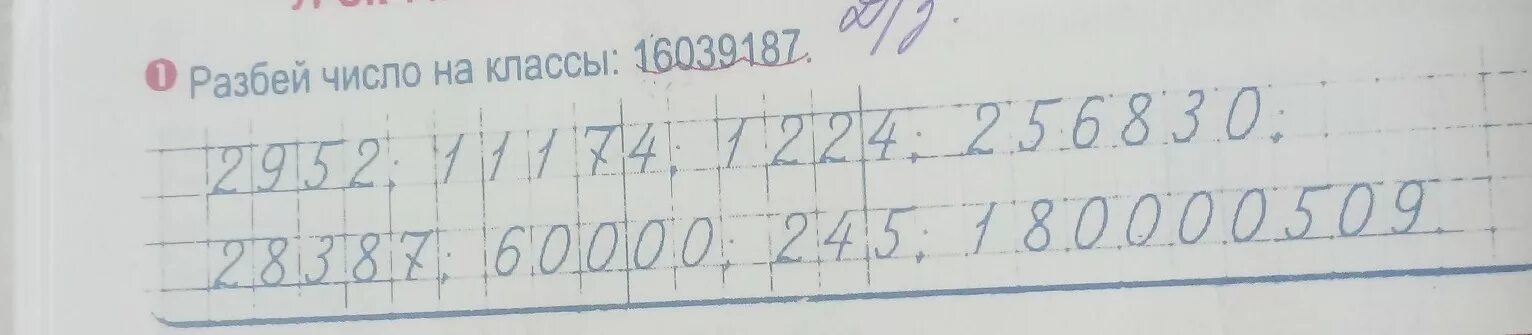 1 Разбей число на классы: 16039187. Д/з.
2952; 11174; 1224; 256830;
28387; 60000; 245; 180000509